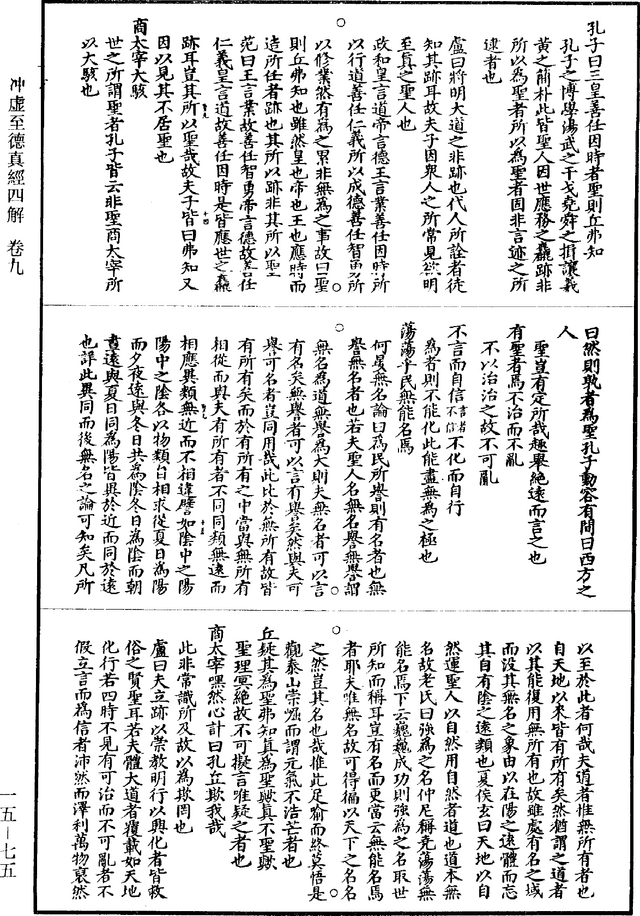 孔子曰三皇善任因時者聖則丘弗知
孔子之博學湯武之干戈堯舜之揖讓羲
黃之簡朴此皆聖人因世應務之麤跡非
所以為聖者所以為聖者固非言迹之所
逮者也
盧曰將明大道之非跡也代人所詮者徒
知其跡耳故夫子因衆人之所常見欲明
至真之聖人也
政和皇言道帝言德王言業善任因時所
以行道善任仁義所以成德善任智勇所
以修業然有為之累非無為之事故曰聖
則丘弗知也雖然皇也帝也王也應時而
造所任者跡也其所以跡非其所以聖
范曰王言業故善任智勇帝言德故善任
仁義皇言道故善任因時是皆應世之麤
跡耳豈其所以聖哉故夫子皆曰弗知又
因以見其不居聖也
商太宰大駭
世之所謂聖者孔子皆云非聖商太宰所
以大駭也
曰然則孰者為聖孔子動容有間曰西方之
人
聖豈有定所哉趣舉絕遠而言之也
有聖者焉不治而不亂
不以治治之故不可亂
不言而自信言者不信不化而自行
為者則不能化此能盡無為之極也
蕩蕩乎民無能名焉
何晏無名論曰為民所譽則有名者也無
譽無名者也若夫聖人名無名譽無譽謂
無名為道無譽為大則夫無名者可以言
有名矣無譽者可以言有譽矣然與夫可
譽可名者豈同用哉此比於無所有故皆
有所有矣而於有所有之中當與無所有
相從而與夫有所有者不同同類無遠而
相應異類無近而不相違譬如陰中之陽
陽中之陰各以物類自相求從夏日為陽
而夕夜遠與冬日共為陰冬日為陰而朝
晝遠與夏日同為陽皆異於近而同於遠
也詳此異同而後無名之論可知矣凡所
以至於此者何哉夫道者惟無所有者也
自天地以來皆有所有矣然猶謂之道者
以其能復用無所有也故雖處有名之域
而沒其無名之象由以在陽之遠體而忘
其自有陰之遠類也夏侯玄曰天地以自
然運聖人以自然用自然者道也道本無
名故老氏曰強為之名仲尼稱堯蕩蕩無
能名焉下云巍巍成功則強為之名取世
所知而稱耳豈有名而更當云無能名焉
者耶夫唯無名故可得徧以天下之名名
之然豈其名也哉惟此足喻而終莫悟是
觀泰山崇崛而謂元氣不浩芒者也
丘疑其為聖弗知真為聖歟真不聖歟
聖理冥絕故不可擬言唯疑之者也
商太宰嘿然心計曰孔丘欺我哉
此非常識所及故以為欺罔也
盧曰夫立跡以崇教明行以興化者皆救
俗之賢聖耳若夫體大道者覆載如天地
化行若四時不見有可治而不可亂者不
假立言而為信者沛然而澤利萬物裒然
冲虛至德真經四解 卷九
一五-七五